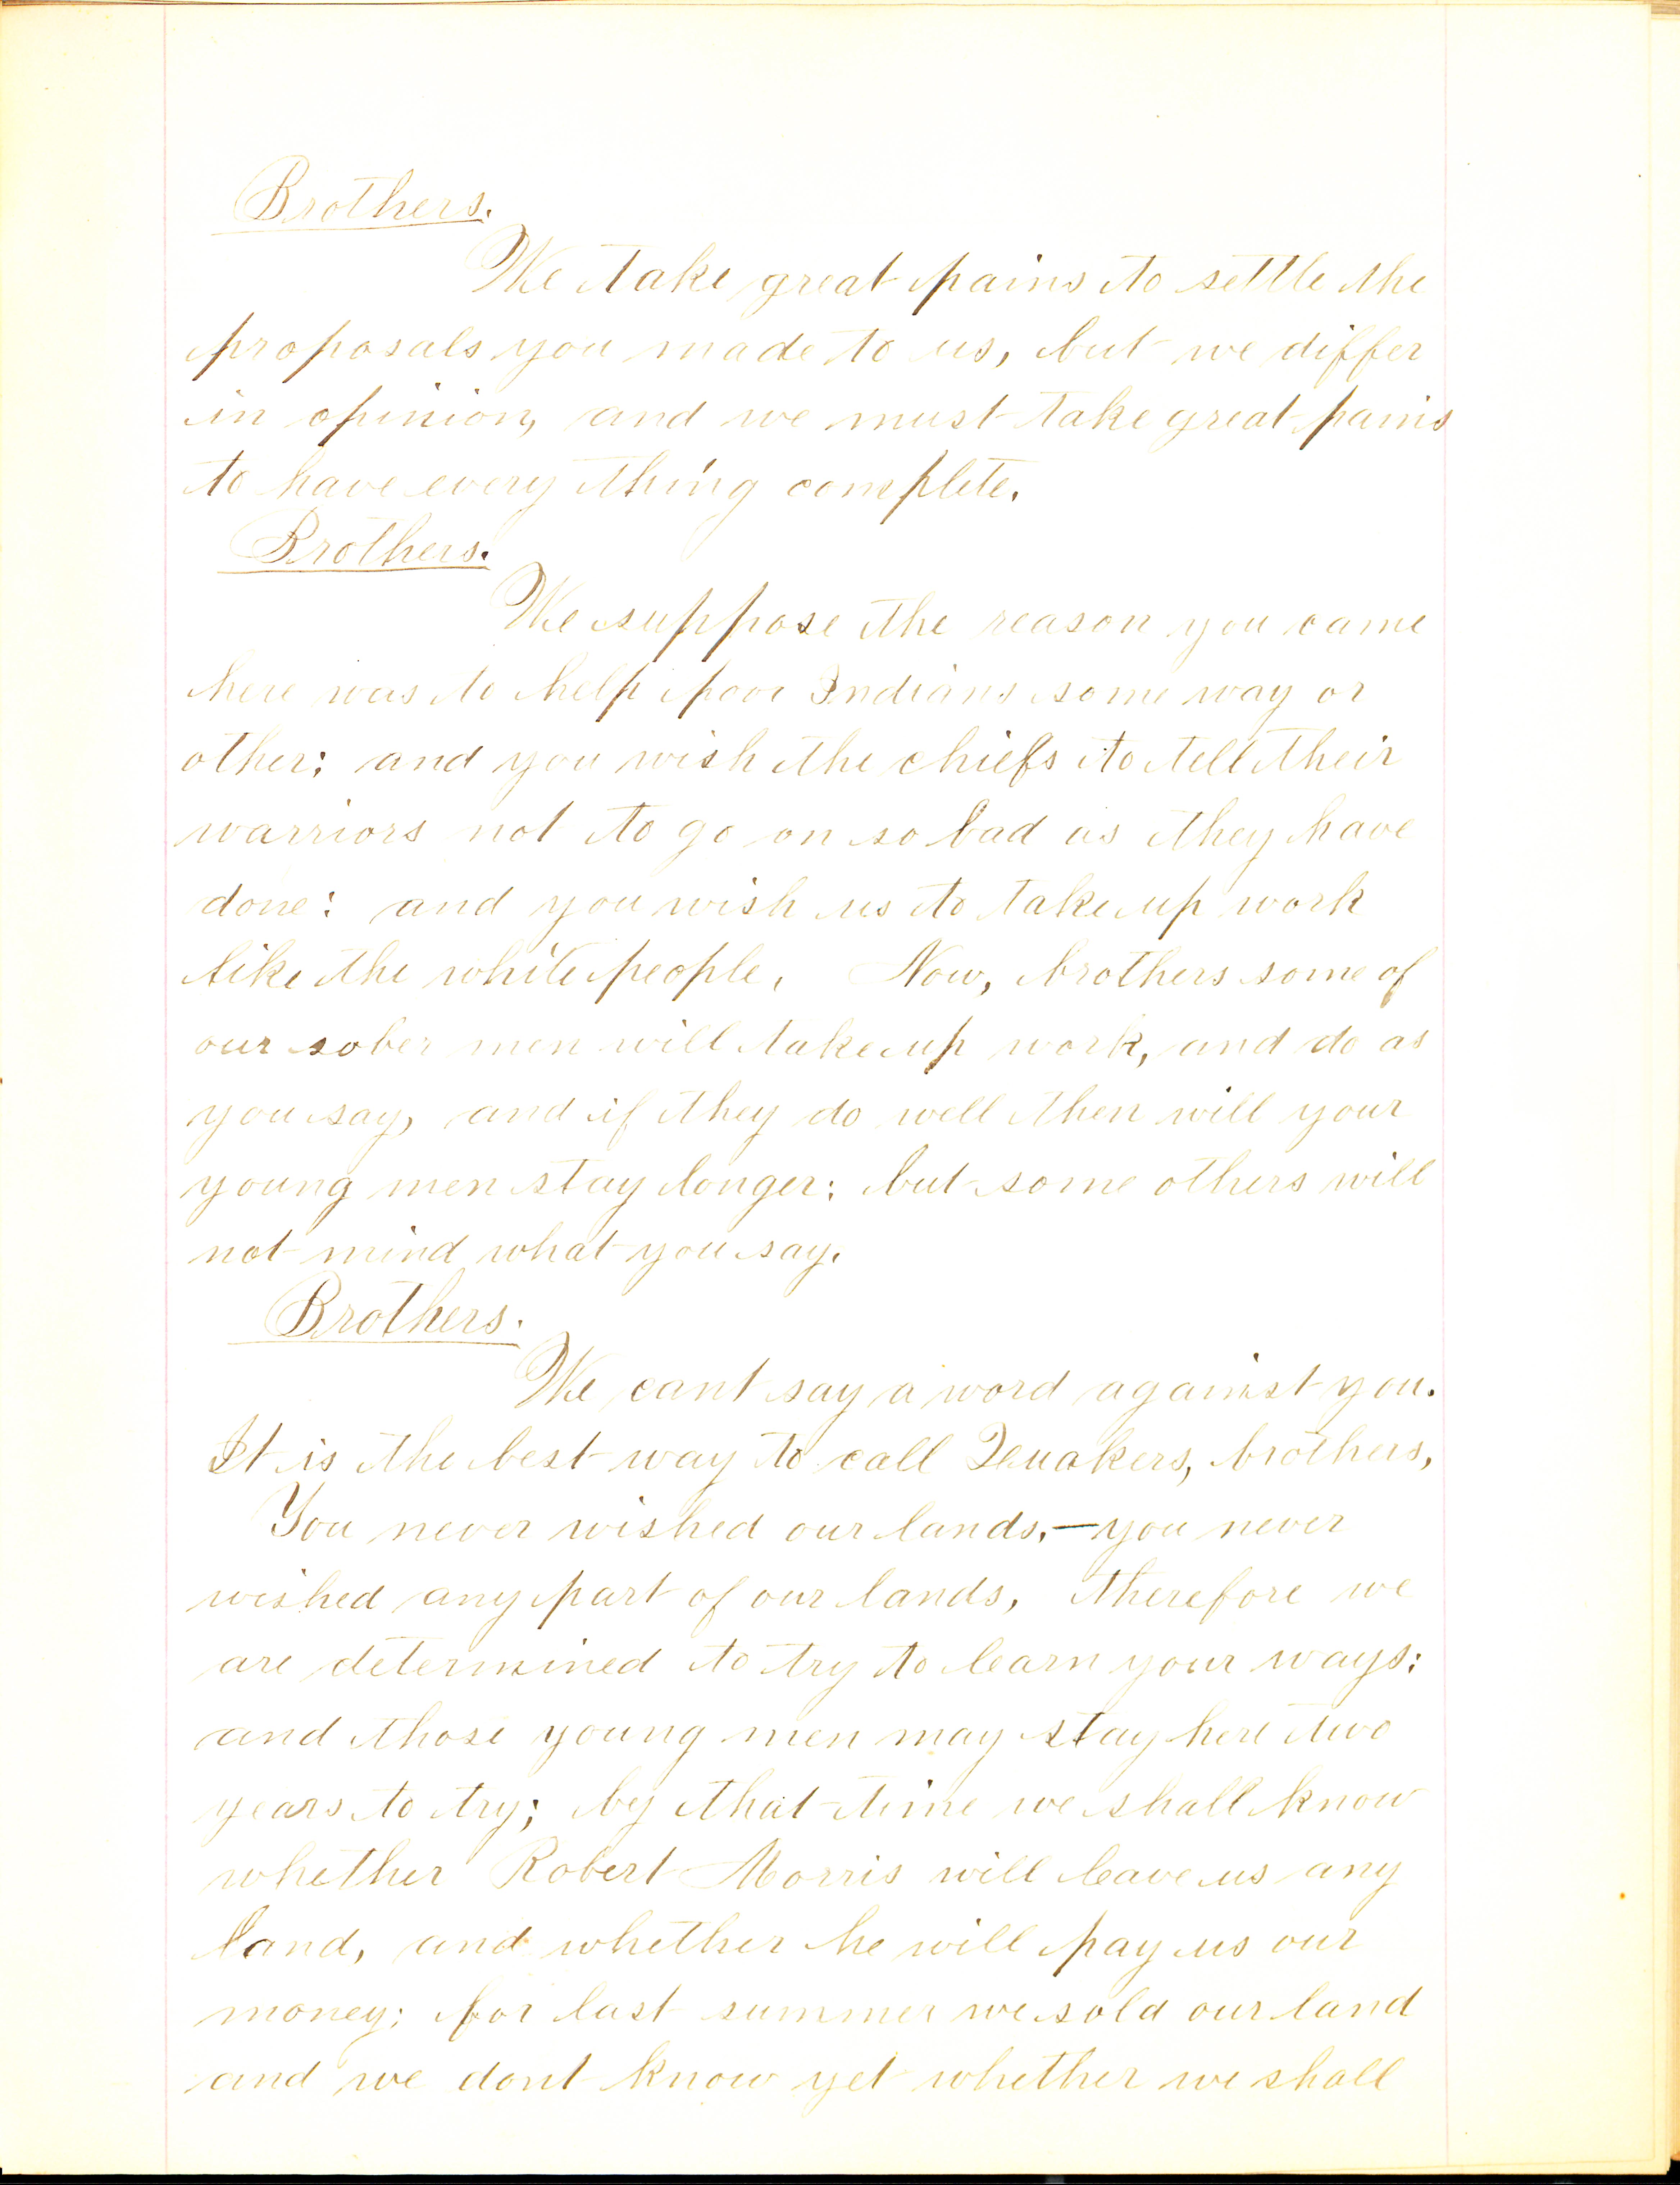 Brothers.
We take great pains to settle the
proposals you made to us, but we differ
in opinion, and we must take great pains
to have every thing complete.
Brothers.
We suppose the reason you came
here was to help poor Indians some way or
other; and you wish the chiefs to tell their
warriors not to go on so bad as they have
done; and you wish us to take up work
like the white people. Now, brothers some of
our sober men will take up work, and do as
you say, and if they do well then will your
young men stay longer; but some others will
not mind what you say.
Brothers.
We cant say a word against you.
It is the best way to call Quakers, brothers,
You never wished our lands,—you never
wished any part of our lands, therefore we
are determined to try to learn your ways;
and those young men may stay here two
years to try; by that time we shall know
whether Robert Morris will leave us any
land, and whether he will pay us our
money; for last summer we sold our land
and we dont know yet whether we shall